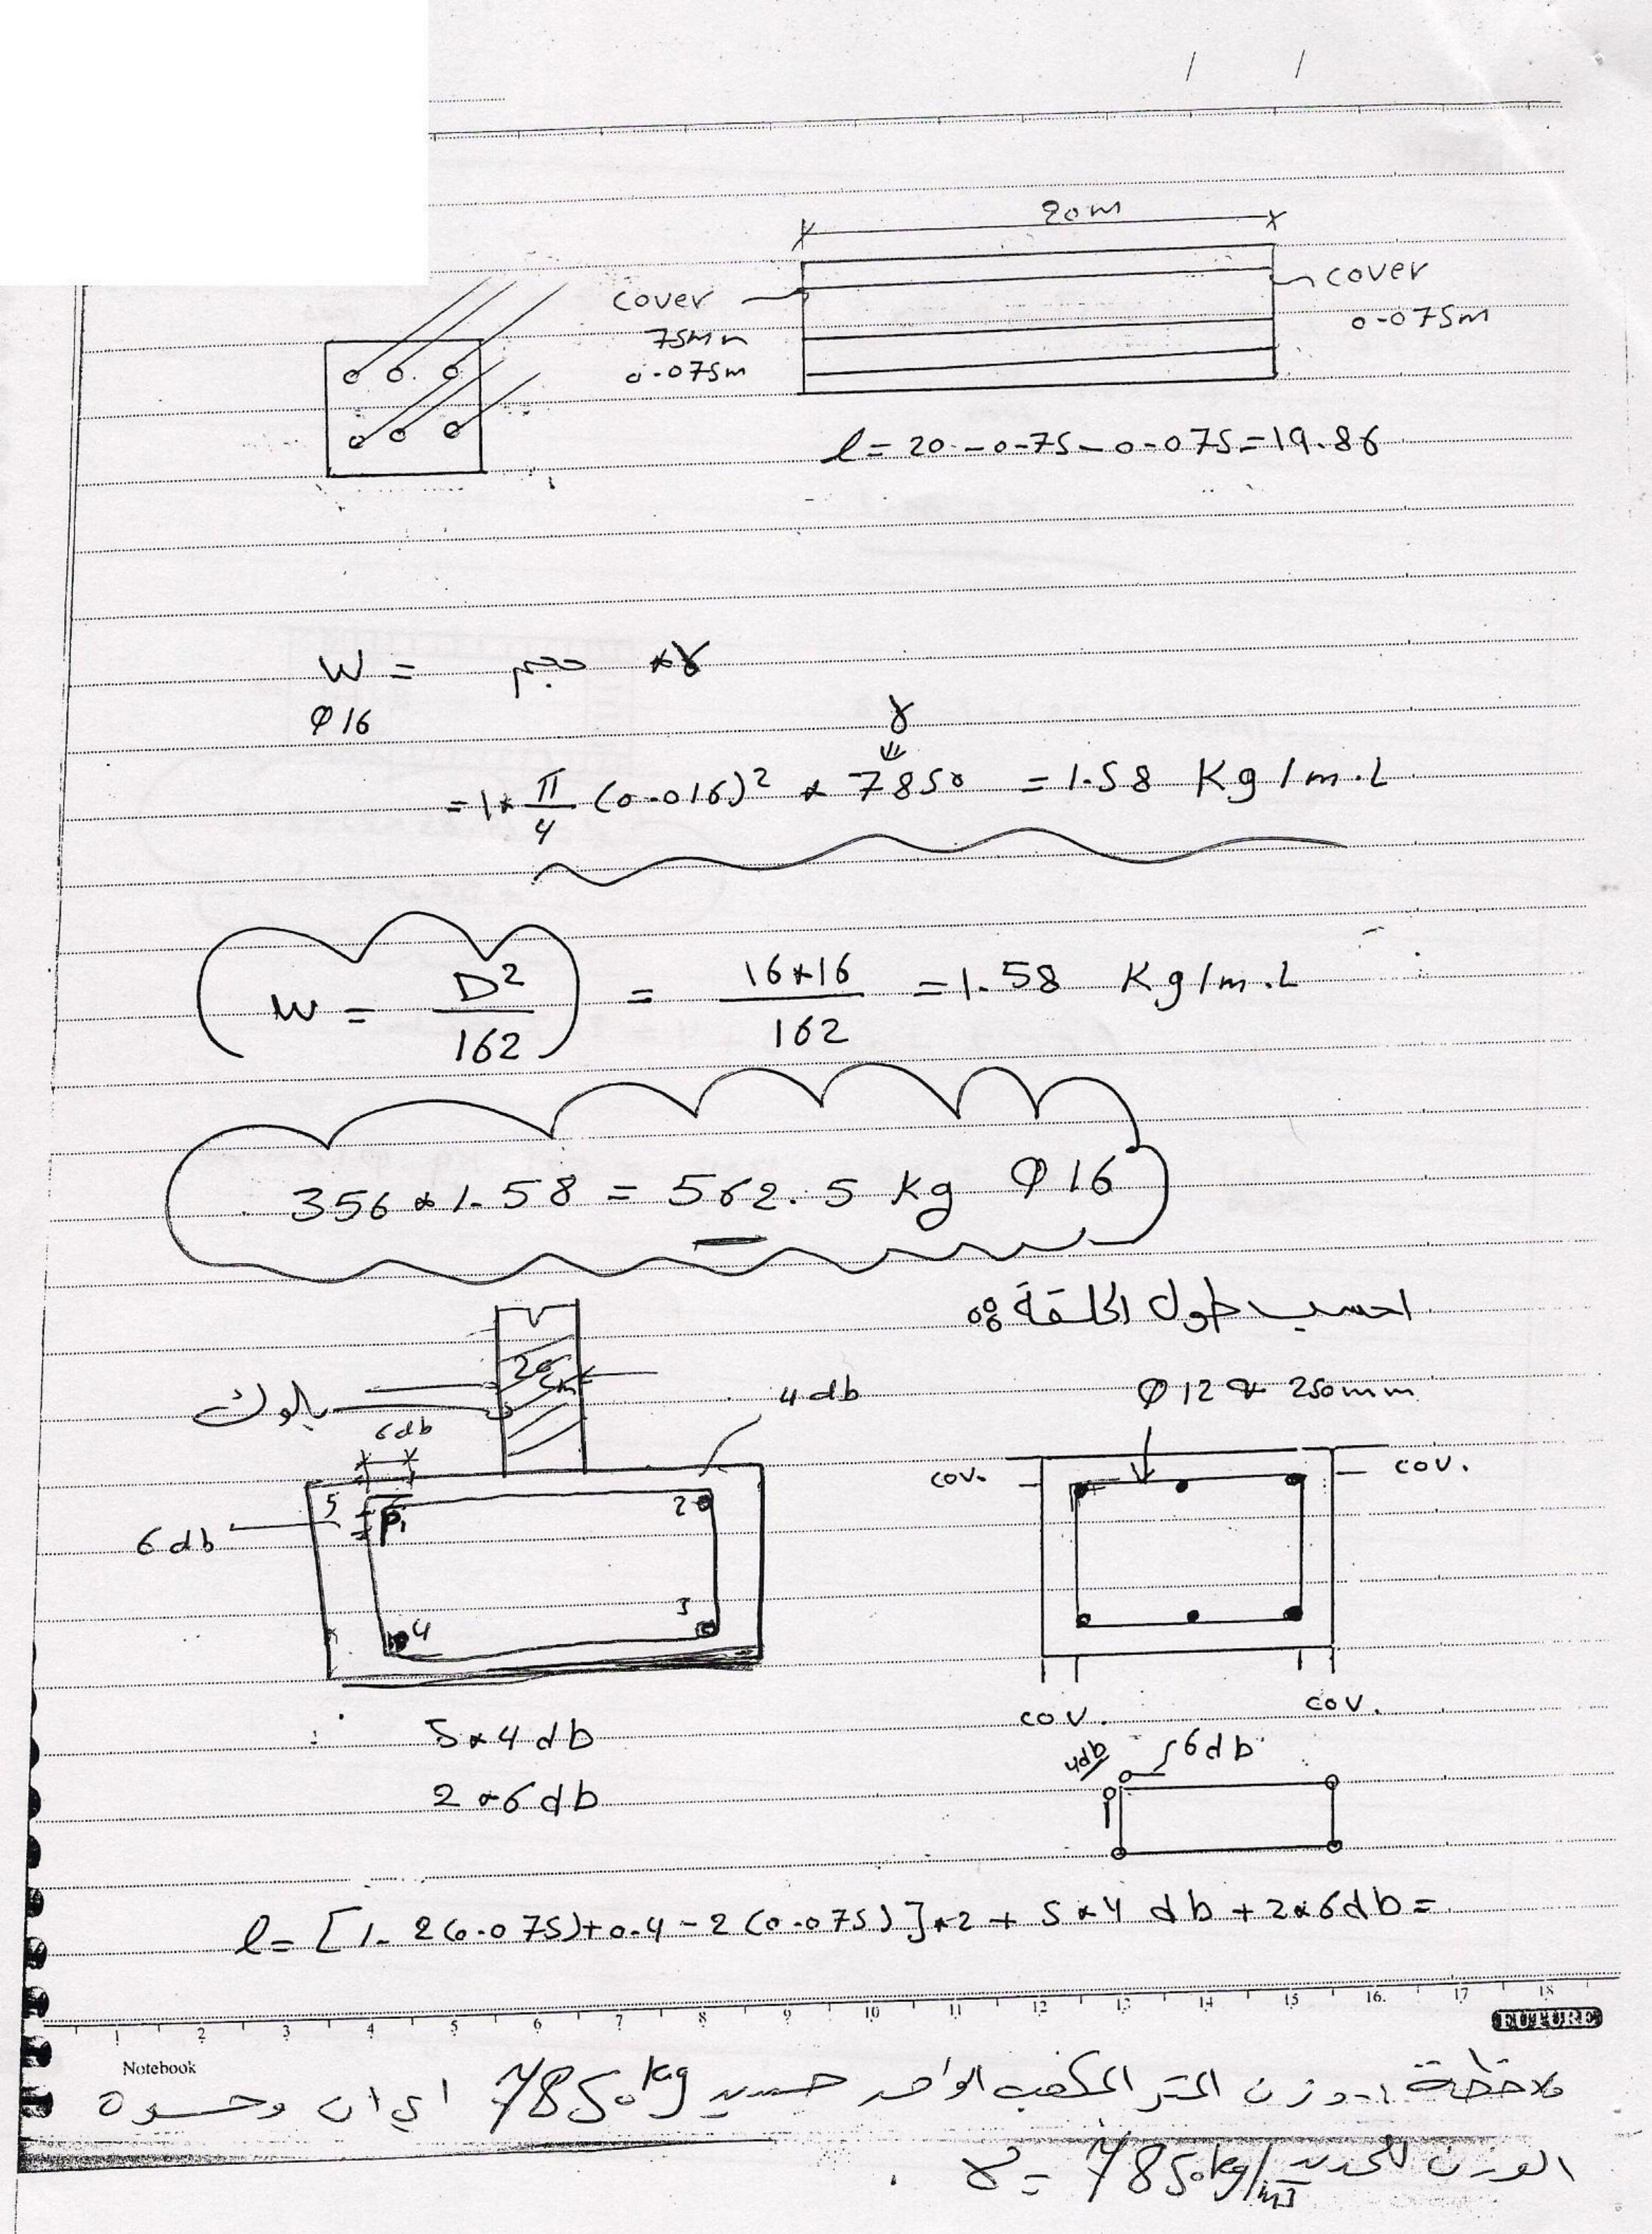 / /
20m
cover
cover
75mm
0.075m
0.075m
l = 20 - 0-75 - 0.075 = 19.86
W = حجم * γ
φ16
γ
= 1 * π/4 (0.016)² * 7850 = 1.58 Kg/m.L
W = D²/162 = 16*16/162 = 1.58 Kg/m.L
356 * 1.58 = 562.5 kg φ16
احسب طول الحلقة :
20 cm
بلوك
4db
φ12 @ 250mm
6db
cov.
cov.
5
1
2
6db
4
3
cov.
cov.
5*4db
4db
6db
2*6db
l = [1-2(0.075)+0.4-2(0.075)]*2 + 5*4 db + 2*6db =
1 2 3 4 5 6 7 8 9 10 11 12 13 14 15 16 17 18
FUTURE
Notebook
ملاحظة :- وزن المتر المكعب الواحد حديد 7850 kg اي ان وحدة
الوزن للحديد γ = 7850 kg/m3 .